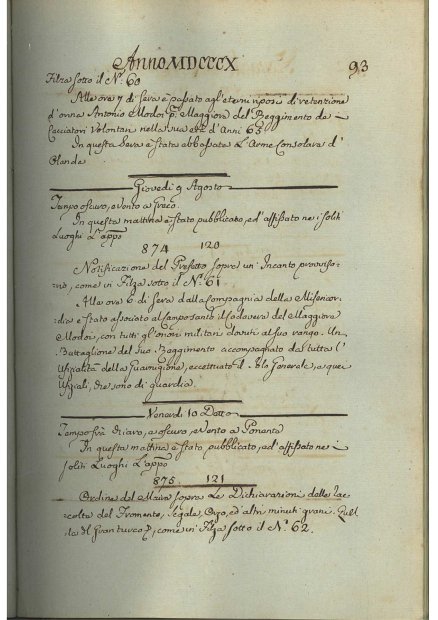 Anno MDCCCX 93
Filza sotto il N.º 60
Alle ore 7 di Sera è passato agl'eterni riposi di retenzione
d'orina Antonio Modoi Maggiore del Reggimento de
Cacciatori Volontari nella sua età d'Anni 63
In questa Sera è stata abbassata L'Arme Consolare d'
Olanda
Giovedi 9 Agosto
Tempo oscuro, e Vento a Greco.
In questa mattina è stato pubblicato, ed'affissato ne i soliti
Luoghi L'app.º
874 120
Notificazione del Prefetto sopra un'Incanto provviso-
rio, come in Filza sotto il N.º 61
Alle ore 6 di Sera dalla Compagnia della Misericor-
dia è stato associato al Camposanto il Cadavere del Maggiore
Modoi, con tutti gl'onori militari dovuti al suo rango. Un
Battaglione del suo Reggimento accompagnato da tutta l'
Ufizialità della Guarnigione, eccettuato il Generale, e quei
Ufiziali, che sono di guardia.
Venerdi 10 Detto
Tempo frà chiaro, a oscuro, e Vento a Ponente
In questa mattina è stato pubblicato, ed'affissato ne i
soliti Luoghi L'app.º
875 121
Ordine del Maire sopra Le Dichiarazioni della Rac-
colta del Fromento, Segale, Orzo, ed'altri minuti grani,
la di Granturco, come in Filza sotto il N.º 62.